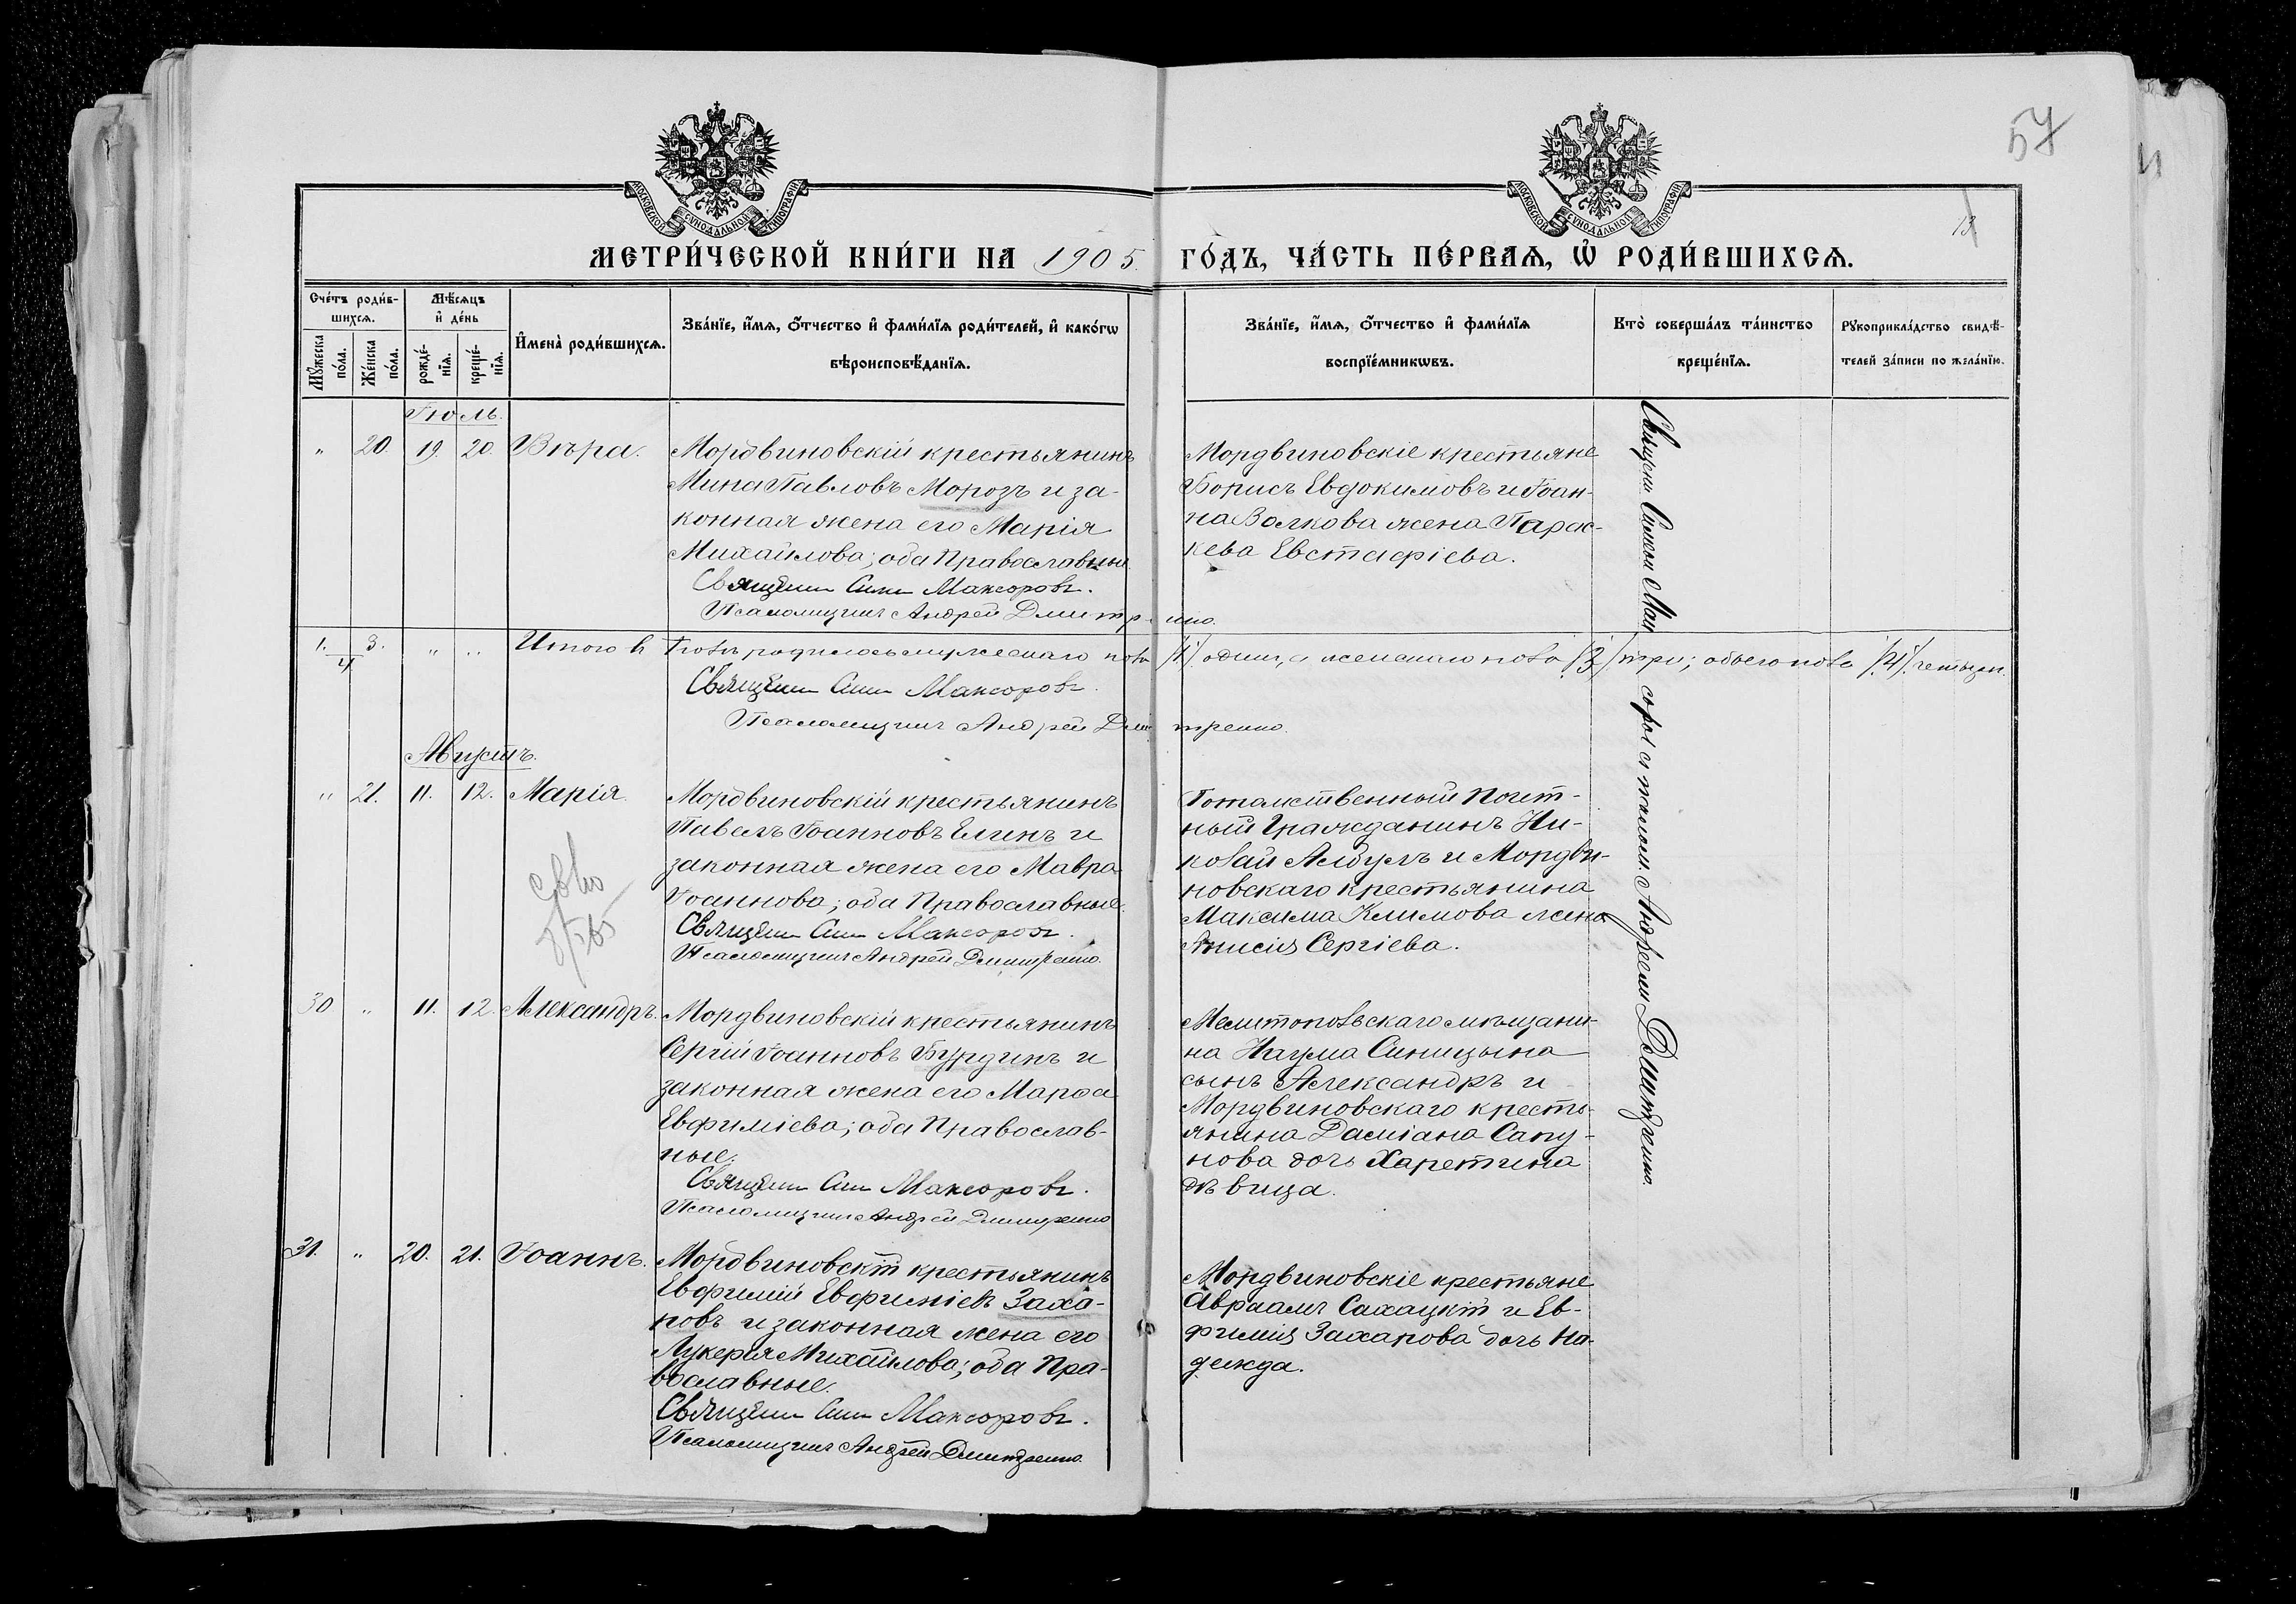 57
13
МОСКОВСКОЙ СѴНОДАЛЬНОЙ ТИПОГРАФІИ
МОСКОВСКОЙ СѴНОДАЛЬНОЙ ТИПОГРАФІИ
МЕТРИ́ЧЕСКОЙ КНИ́ГИ НА 1905. ГО́ДЪ, ЧА́СТЬ ПЕ́РВАѦ, Ѡ҆ РОДИ́ВШИХСѦ.
Сче́тъ роди́в-
шихсѧ.
Мꙋ́жеска
по́ла.
Же́нска
по́ла.
Мѣ́сѧцъ
и҆ де́нь
рожде́-
нїѧ.
креще́-
нїѧ.
И҆мена̀ роди́вшихсѧ.
Зва́нїе, и҆́мѧ, ѻ҆́тчество и҆ фами́лїѧ роди́телей, и҆ како́гѡ
вѣроисповѣ́данїѧ.
Зва́нїе, и҆́мѧ, ѻ҆́тчество и҆ фами́лїѧ
воспрїе́мникѡвъ.
Кто̀ соверша́лъ та́инство
креще́нїѧ.
Рꙋкоприкла́дство свидѣ́-
телей за́писи по жела́нїю.
Іюль.
" 20. 19. 20. Вѣра.
Мордвиновскій крестьянинъ
Мина Павловъ Морозъ и за-
конная жена его Марія
Михайлова; оба Православные
Священ Сим Максоровъ.
Псаломщикъ Андрей Дмитренко.
Мордвиновскіе крестьяне
Борисъ Евдокимовъ и Іоан-
на Волкова жена Парас-
кева Евстафіева.
1. 3. " " Итого въ Іюлѣ родилось мужескаго пола /1/ одинъ, а женскаго пола /3/ три; обоего пола /4/ четыре.
4
Священ Сим Максоровъ.
Псаломщикъ Андрей Дмитренко.
Августъ.
" 21. 11. 12. Марія.
Мордвиновскій крестьянинъ
Павелъ Іоанновъ Елинъ и
законная жена его Мавра
Іоаннова; оба Православные.
Священ Сим Максоровъ.
Псаломщикъ Андрей Дмитренко.
Потомственный Почет-
ный Гражданинъ Ни-
колай Албулъ и Мордви-
новскаго крестьянина
Максима Климова жена
Анисія Сергіева.
30 " 11. 12. Александръ.
Мордвиновскій крестьянинъ
Сергій Іоанновъ Бурдинъ и
законная жена его Марѳа
Евфиміева; оба Православ-
ные.
Священ Сим Максоровъ.
Псаломщикъ Андрей Дмитренко
Мелитопольскаго мѣщани-
на Наума Синицына
сынъ Александръ и
Мордвиновскаго кресть-
янина Даміана Сапу-
нова дочь Харетина
дѣвица.
31. " 20. 21. Іоаннъ.
Мордвиновскій крестьянинъ
Евфимій Евфиміевъ Заха-
ровъ и законная жена его
Лукерья Михайлова; оба Пра-
вославные.
Священ Сим Максоровъ.
Псаломщикъ Андрей Дмитренко.
Мордвиновскіе крестьяне
Авраамъ Сахацкій и Ев-
фимія Захарова дочь На-
дежда.
Священ Симеон Мак соров с псаломщ. Андреем Дмитренко.